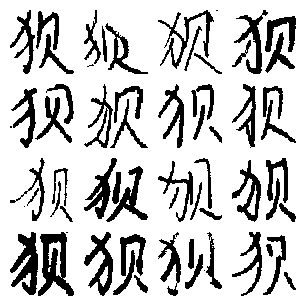 狈 狈 狈 狈
狈 狈 狈 狈
狈 狈 狈 狈
狈 狈 狈 狈